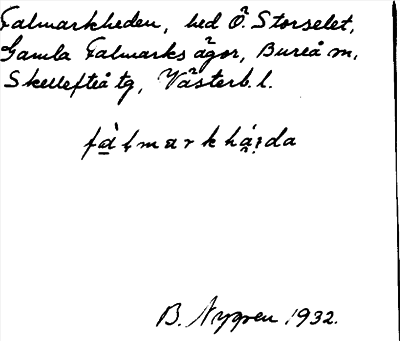 Falmarkheden, hed Ö. Storselet,
Gamla Falmarks ägor, Bureå sn,
Skellefteå tg, Västerb. l.
fàḷmarkhä́ːda
B. Nygren 1932.